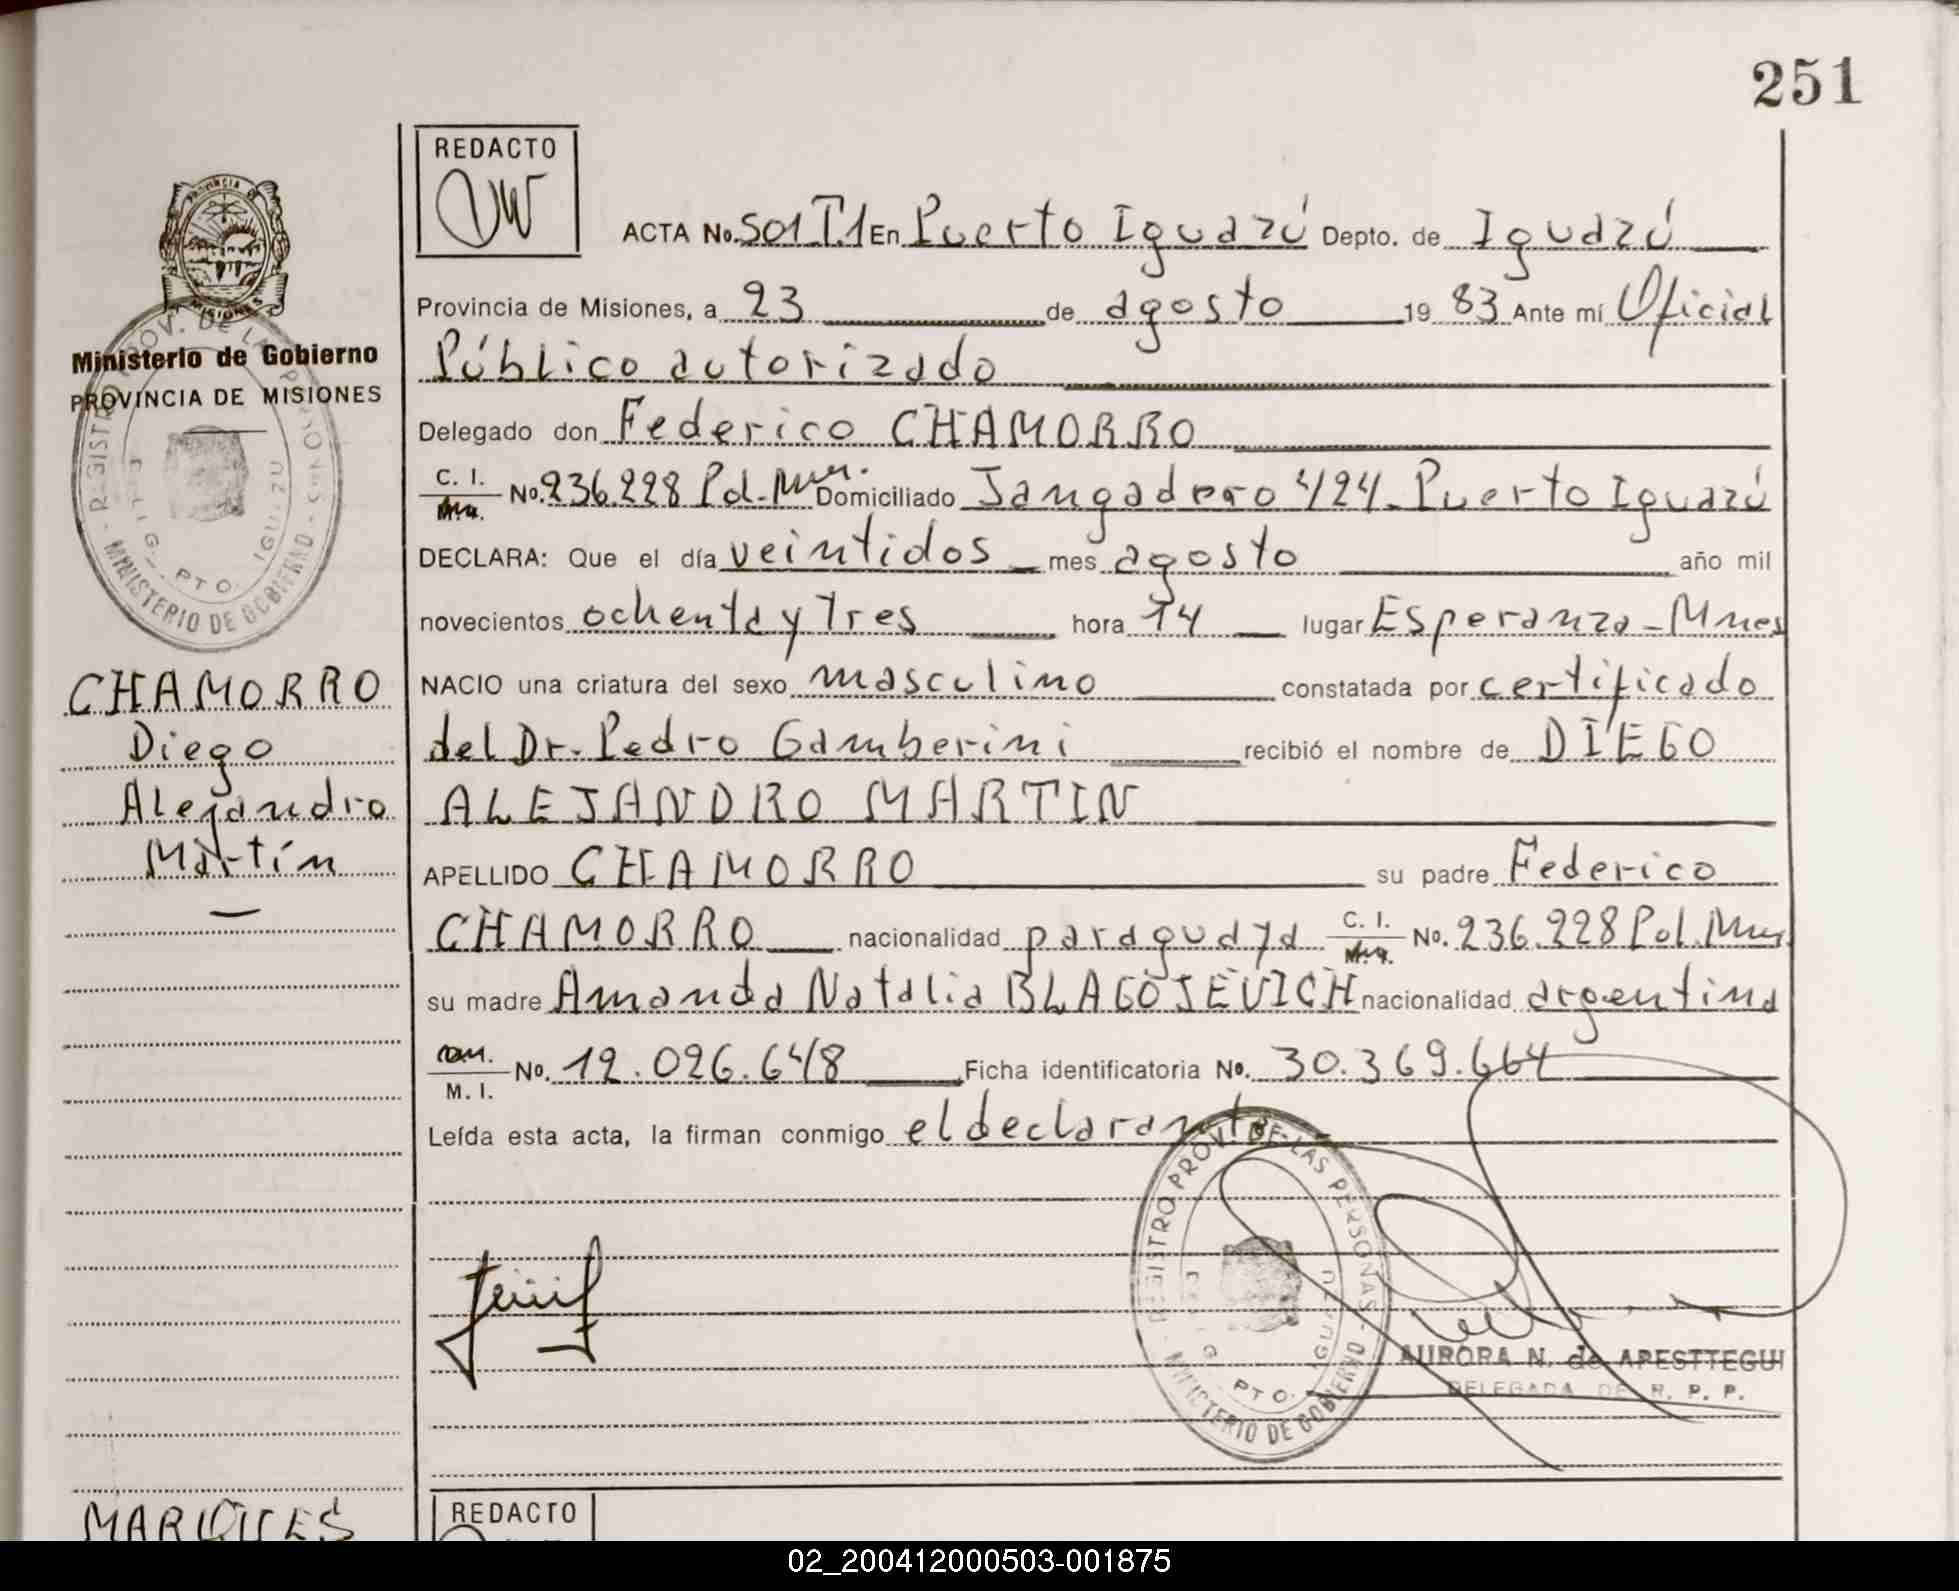 251
REDACTO
ACTA No. 501 T.1 En Puerto Iguazú Depto. de Iguazú
Provincia de Misiones, a 23 de agosto 19 83 Ante mí Oficial
Público autorizado
Delegado don Federico CHAMORRO
C. I. No. 236.228 Pol. Mnes. Domiciliado Jangadero 424 - Puerto Iguazú
DECLARA: Que el día veintidos mes agosto año mil
novecientos ochenta y tres hora 14 lugar Esperanza - Mnes
NACIO una criatura del sexo masculino constatada por certificado
del Dr. Pedro Gamberini recibió el nombre de DIEGO
ALEJANDRO MARTIN
APELLIDO CHAMORRO su padre Federico
CHAMORRO nacionalidad paraguaya C. I. No. 236.228 Pol. Mnes
su madre Amanda Natalia BLAGOJEVICH nacionalidad argentina
M. I. No. 12.026.648 Ficha identificatoria No. 30.369.664
Leída esta acta, la firman conmigo el declarante
PROVINCIA DE
MISIONES
Ministerio de Gobierno
PROVINCIA DE MISIONES
REGISTRO PROV. DE LAS PERSONAS - MINISTERIO DE GOBIERNO
PTO. IGUAZU
CHAMORRO
Diego
Alejandro
Martín
REGISTRO PROV. DE LAS PERSONAS - MINISTERIO DE GOBIERNO
PTO. IGUAZU
AURORA N. de APESTTEGUI
DELEGADA DE R. P. P.
MARQUES
REDACTO
02_200412000503-001875